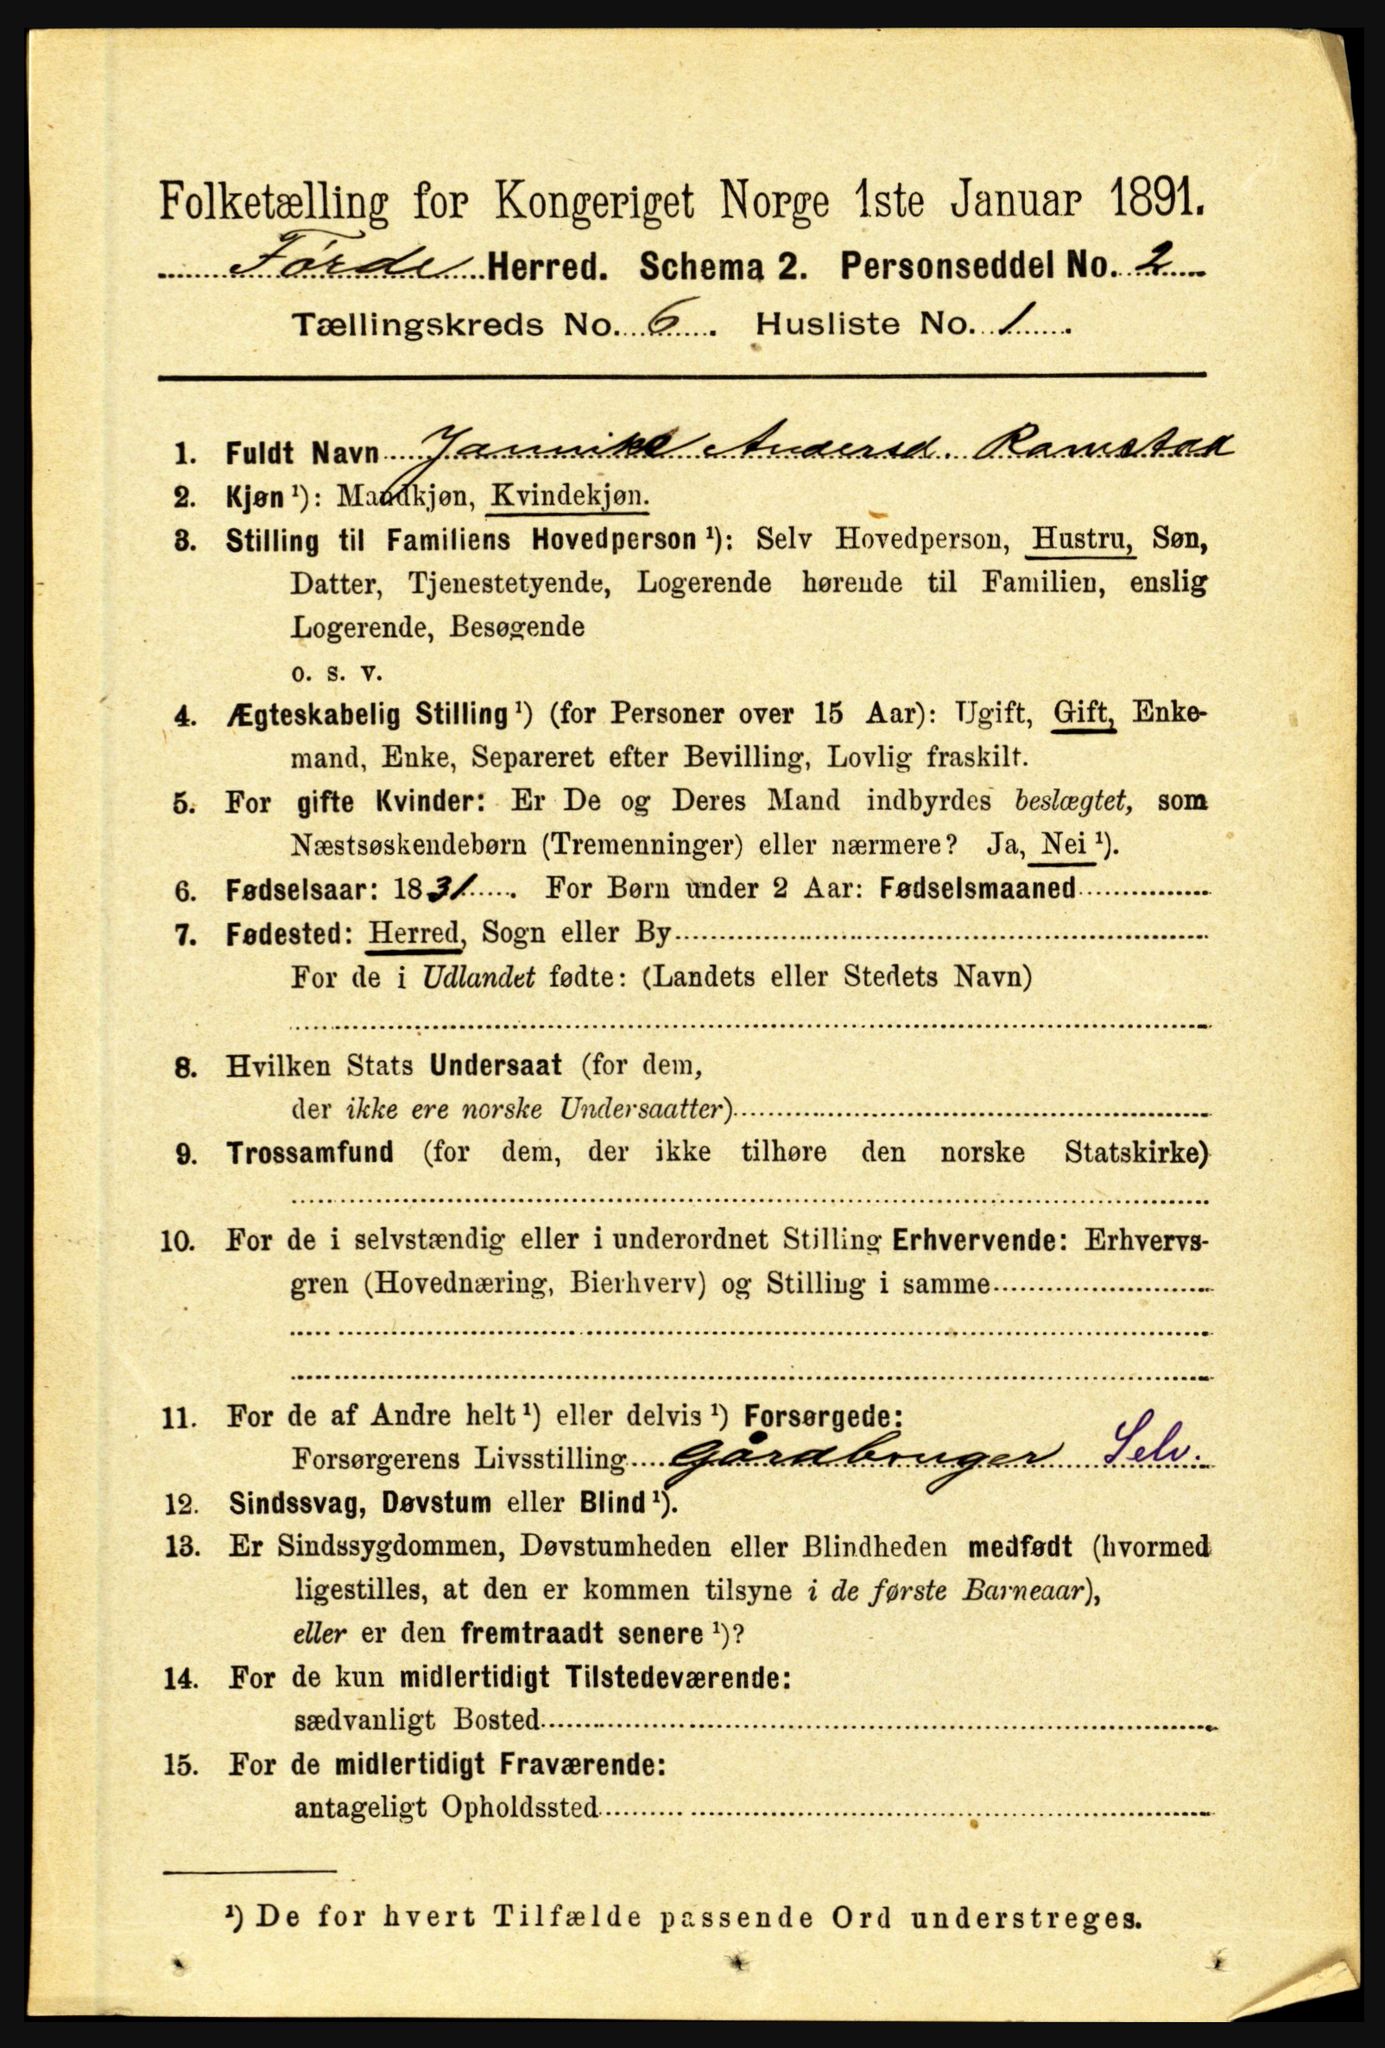 Folketælling for Kongeriget Norge 1ste Januar 1891.
Førde Herred. Schema 2. Personseddel No. 2
Tællingskreds No. 6. Husliste No. 1.
1. Fuldt Navn Jannike Andersd. Ramstad
2. Kjøn ¹): Mandkjøn, Kvindekjøn.
3. Stilling til Familiens Hovedperson ¹): Selv Hovedperson, Hustru, Søn,
Datter, Tjenestetyende, Logerende hørende til Familien, enslig
Logerende, Besøgende
o. s. v.
4. Ægteskabelig Stilling ¹) (for Personer over 15 Aar): Ugift, Gift, Enke-
mand, Enke, Separeret efter Bevilling, Lovlig fraskilt.
5. For gifte Kvinder: Er De og Deres Mand indbyrdes beslægtet, som
Næstsøskendebørn (Tremenninger) eller nærmere? Ja, Nei ¹).
6. Fødselsaar: 1831. For Børn under 2 Aar: Fødselsmaaned
7. Fødested: Herred, Sogn eller By
For de i Udlandet fødte: (Landets eller Stedets Navn)
8. Hvilken Stats Undersaat (for dem,
der ikke ere norske Undersaatter)
9. Trossamfund (for dem, der ikke tilhøre den norske Statskirke)
10. For de i selvstændig eller i underordnet Stilling Erhvervende: Erhvervs-
gren (Hovednæring, Bierhverv) og Stilling i samme
11. For de af Andre helt ¹) eller delvis ¹) Forsørgede:
Forsørgerens Livsstilling Gårdbruger Selv.
12. Sindssvag, Døvstum eller Blind ¹).
13. Er Sindssygdommen, Døvstumheden eller Blindheden medfødt (hvormed
ligestilles, at den er kommen tilsyne i de første Barneaar),
eller er den fremtraadt senere ¹)?
14. For de kun midlertidigt Tilstedeværende:
sædvanligt Bosted
15. For de midlertidigt Fraværende:
antageligt Opholdssted
¹) De for hvert Tilfælde passende Ord understreges.